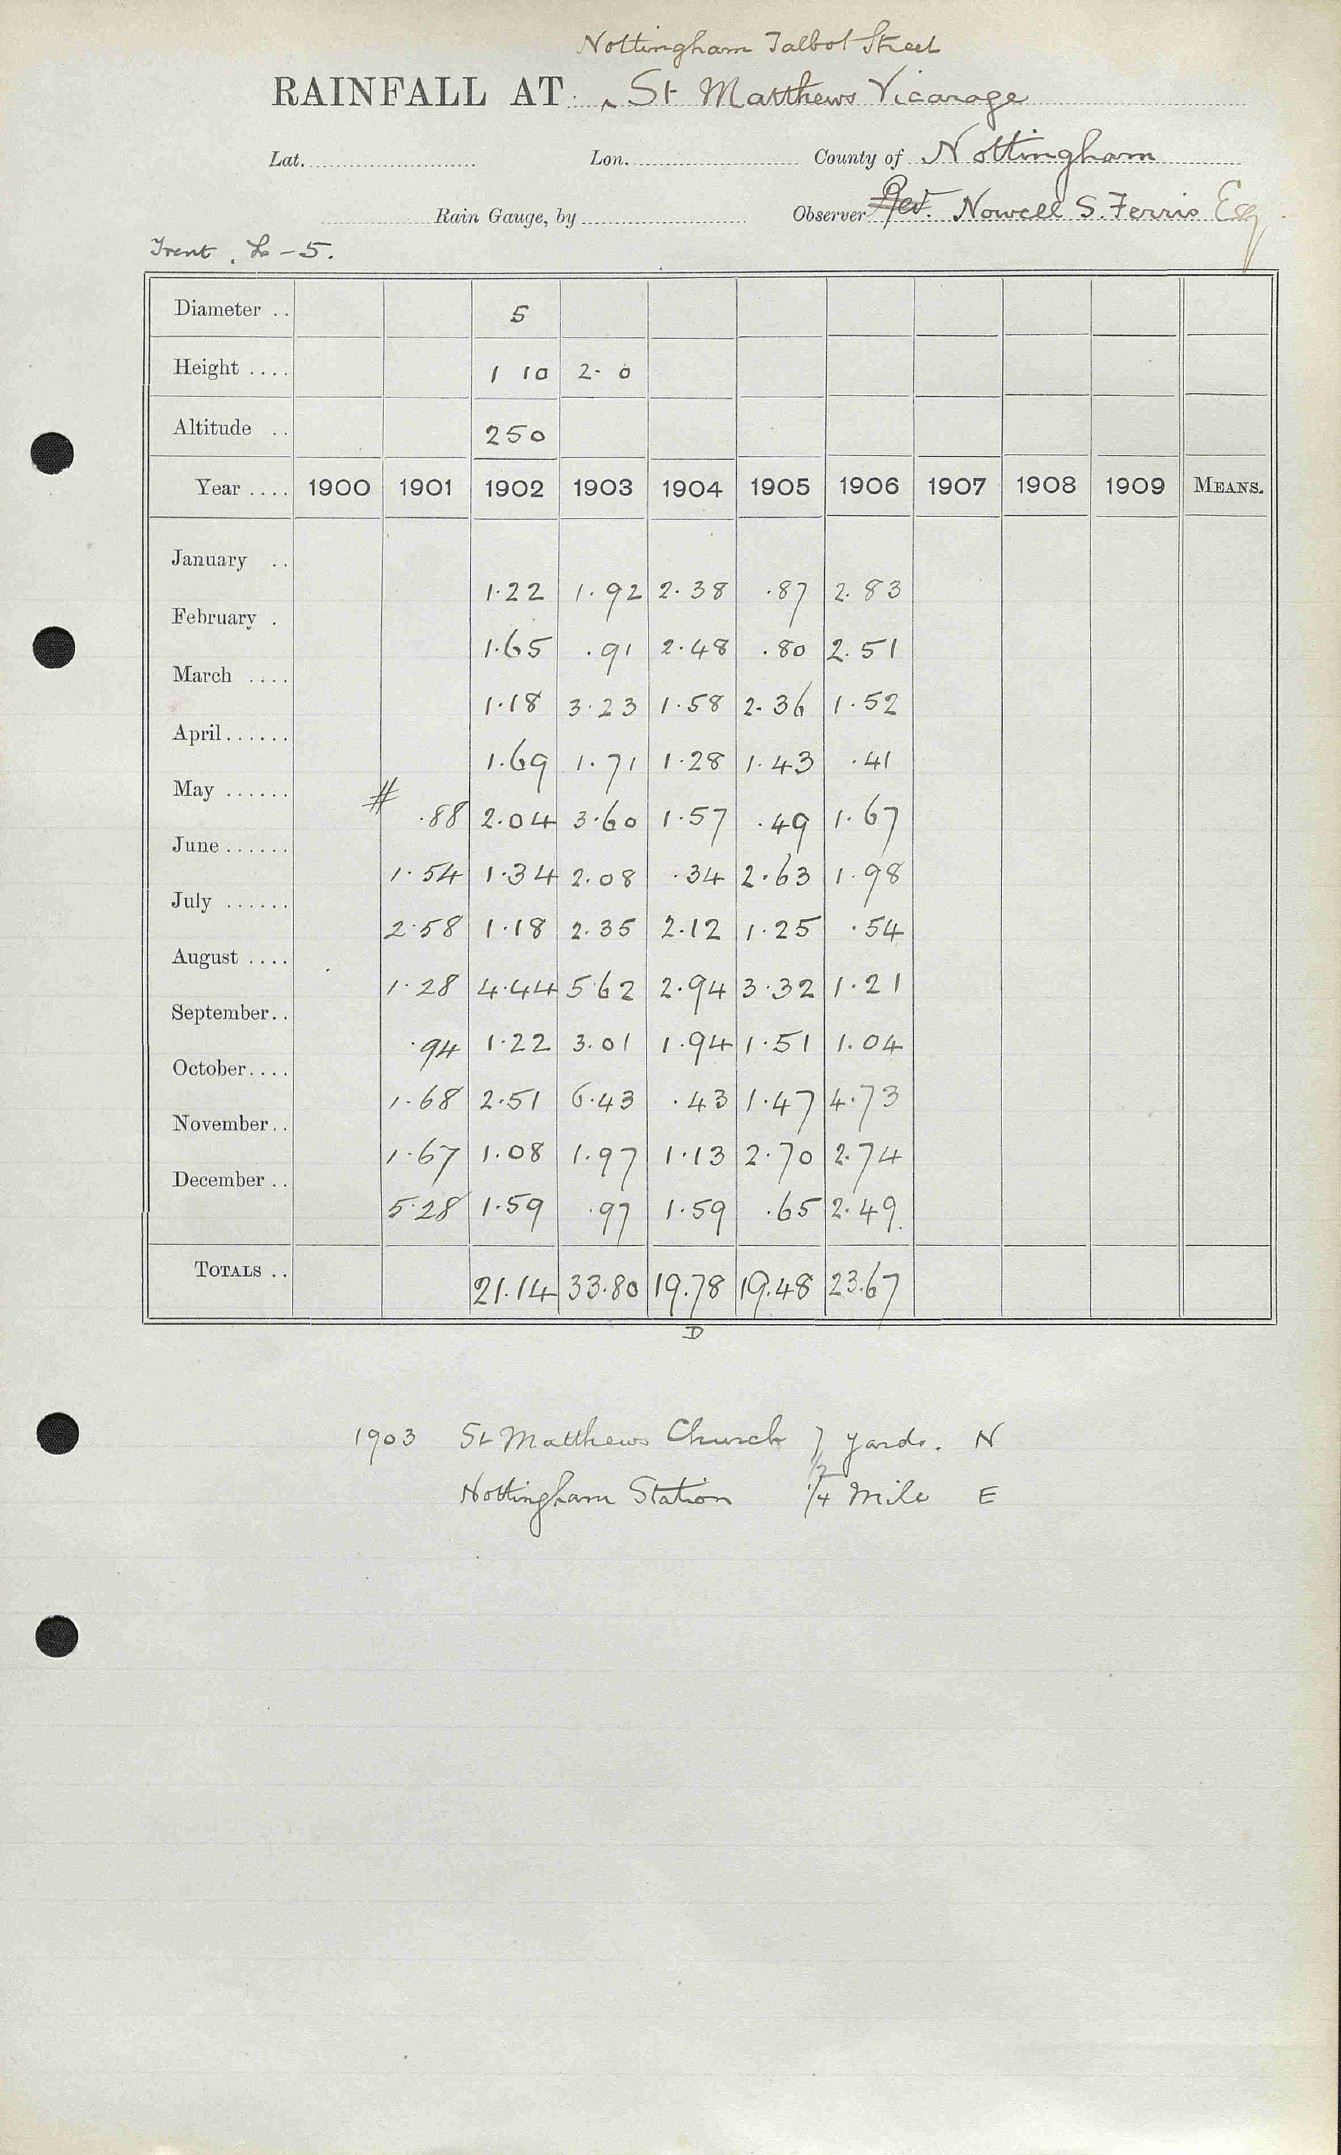 Nottingham Talbot Street
RAINFALL AT ‸ St Matthews Vicarage
Lat. Lon. County of Nottingham
Rain Gauge, by Observer Rev. Nowell S. Ferris Esq
Trent . L - 5.
Diameter .. 5
Height .... 1 10 2- 0
Altitude .. 250
Year .... 1900 1901 1902 1903 1904 1905 1906 1907 1908 1909 MEANS.
January .. 1.22 1.92 2.38 .87 2.83
February . 1.65 .91 2.48 .80 2.51
March .... 1.18 3.23 1.58 2.36 1.52
April...... 1.69 1.71 1.28 1.43 .41
May ...... # .88 2.04 3.60 1.57 .49 1.67
June ...... 1.54 1.34 2.08 .34 2.63 1.98
July ...... 2.58 1.18 2.35 2.12 1.25 .54
August .... 1.28 4.44 5.62 2.94 3.32 1.21
September.. .94 1.22 3.01 1.94 1.51 1.04
October.... 1.68 2.51 6.43 .43 1.47 4.73
November.. 1.67 1.08 1.97 1.13 2.70 2.74
December .. 5.28 1.59 .97 1.59 .65 2.49
TOTALS .. 21.14 33.80 19.78 19.48 23.67
D
1903 St Matthews Church 7 yards. N
Nottingham Station 1/4 Mile E